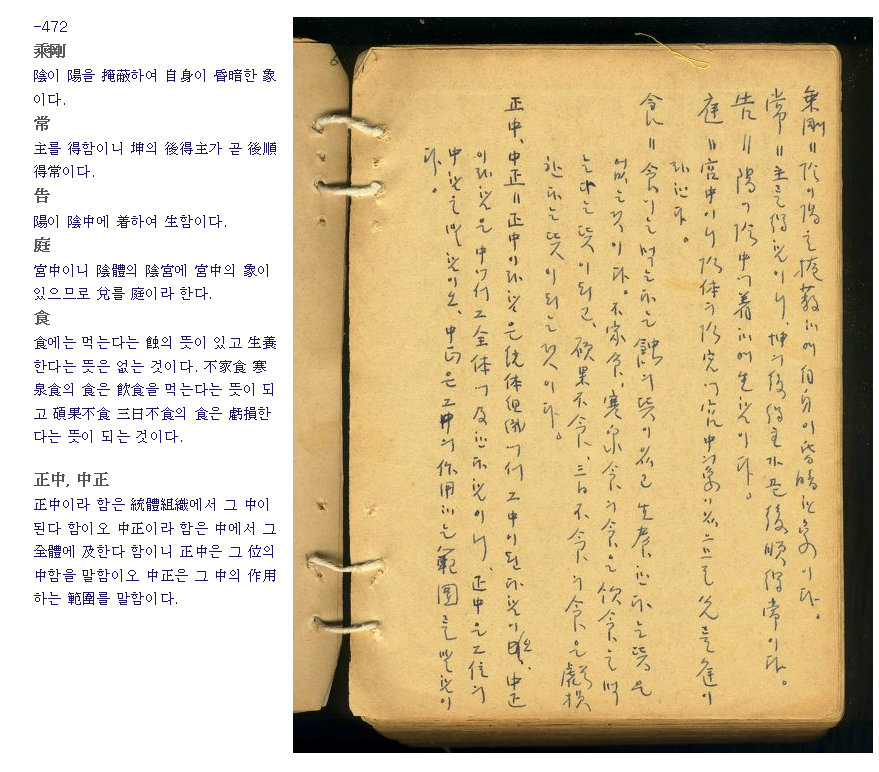 -472
乘剛
陰이 陽을 掩蔽하여 自身이 昏暗한 象
이다.
常
主를 得함이니 坤의 後得主가 곧 後順
得常이다.
告
陽이 陰中에 着하여 生함이다.
庭
宮中이니 陰體의 陰宮에 宮中의 象이
있으므로 兌를 庭이라 한다.
食
食에는 먹는다는 蝕의 뜻이 있고 生養
한다는 뜻은 없는 것이다. 不家食 寒
泉食의 食은 飮食을 먹는다는 뜻이 되
고 碩果不食 三日不食의 食은 虧損한
다는 뜻이 되는 것이다.
正中, 中正
正中이라 함은 統體組織에서 그 中이
된다 함이오 中正이라 함은 中에서 그
全體에 及한다 함이니 正中은 그 位의
中함을 말함이오 中正은 그 中의 作用
하는 範圍를 말함이다.
乘剛 = 陰이 陽을 掩蔽하여 自身이 昏暗한 象이다.
常 = 主를 得함이니, 坤의 後得主가 곧 後順得常이다.
告 = 陽이 陰中에 着하여 生함이다.
庭 = 宮中이니 陰体의 陰宮에 宮中의 象이 있으므로 兌를 庭이
라 한다.
食 = 食에는 먹는다는 蝕의 뜻이 있고 生養한다는 뜻은
없는 것이다. 不家食, 寒泉食의 食은 飮食을 먹
는다는 뜻이 되고, 碩果不食, 三日不食의 食은 虧損
한다는 뜻이 되는 것이다.
正中, 中正 = 正中이라 함은 統体組織에서 그 中이 된다 함이오, 中正
이라 함은 中에서 그 全体에 及한다 함이니, 正中은 그 位의
中함을 말함이오, 中正은 그 中의 作用하는 範圍를 말함이
다.